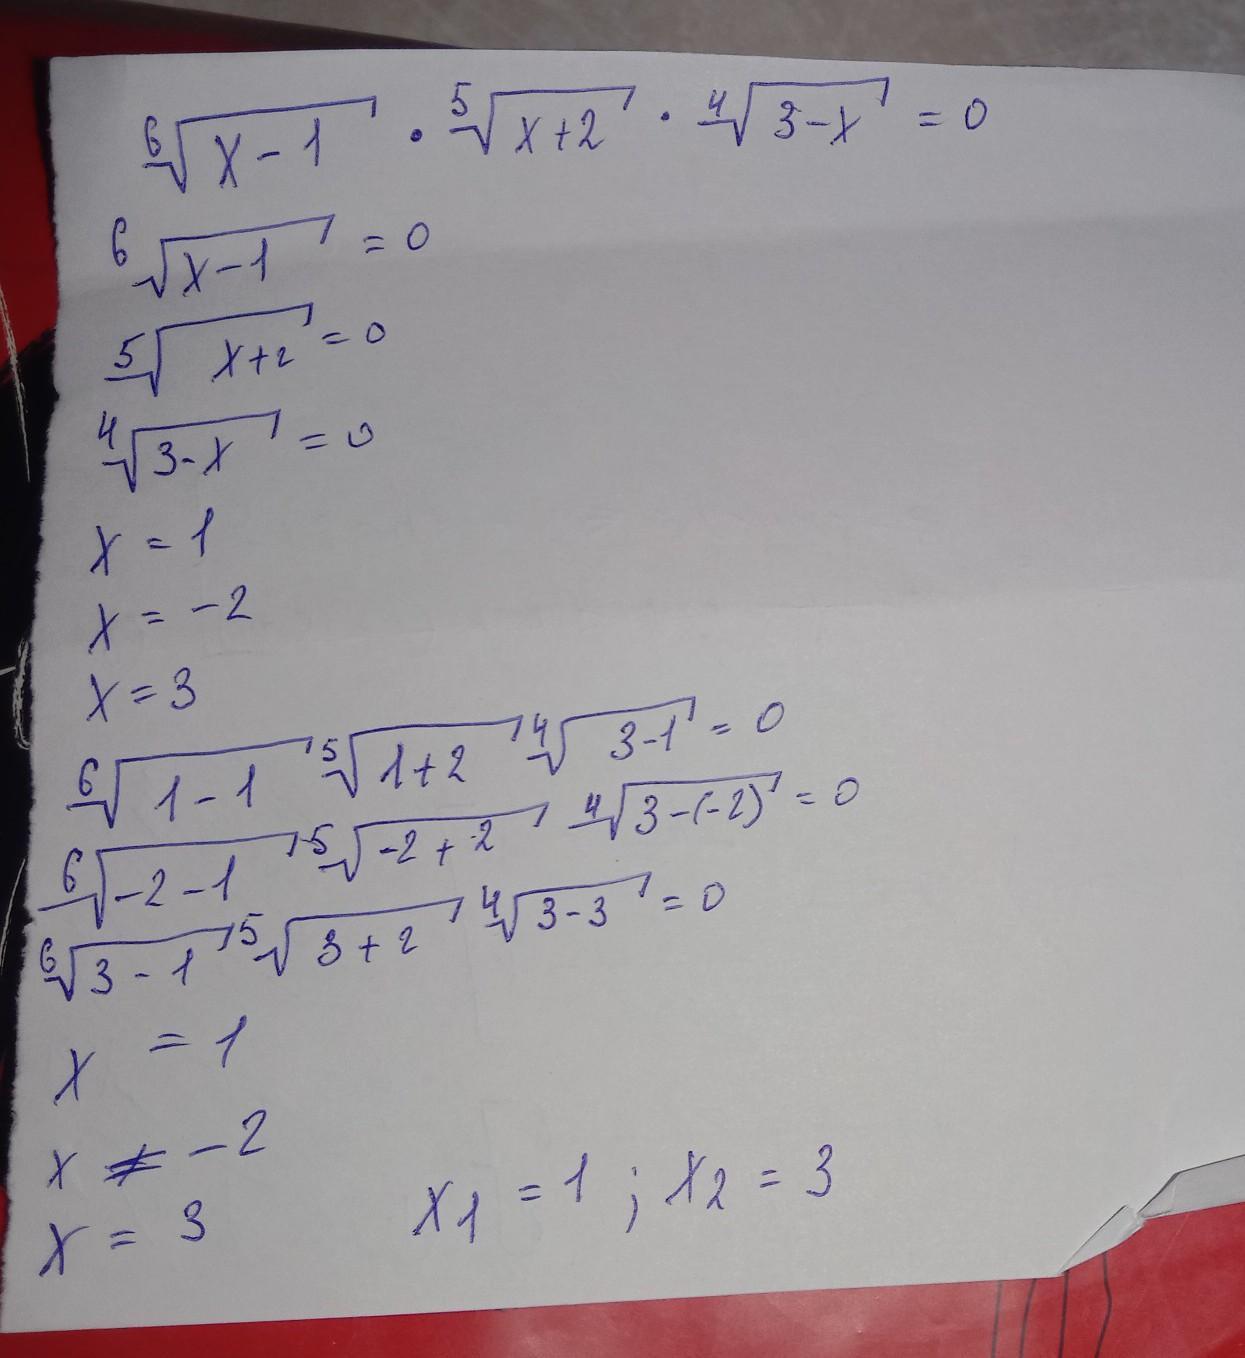 ⁶√(x-1) · ⁵√(x+2) · ⁴√(3-x) = 0
⁶√(x-1) = 0
⁵√(x+2) = 0
⁴√(3-x) = 0
x = 1
x = -2
x = 3
⁶√(1-1) ⁵√(1+2) ⁴√(3-1) = 0
⁶√(-2-1) ⁵√(-2+2) ⁴√(3-(-2)) = 0
⁶√(3-1) ⁵√(3+2) ⁴√(3-3) = 0
x = 1
x ≠ -2
x = 3 x₁ = 1 ; x₂ = 3